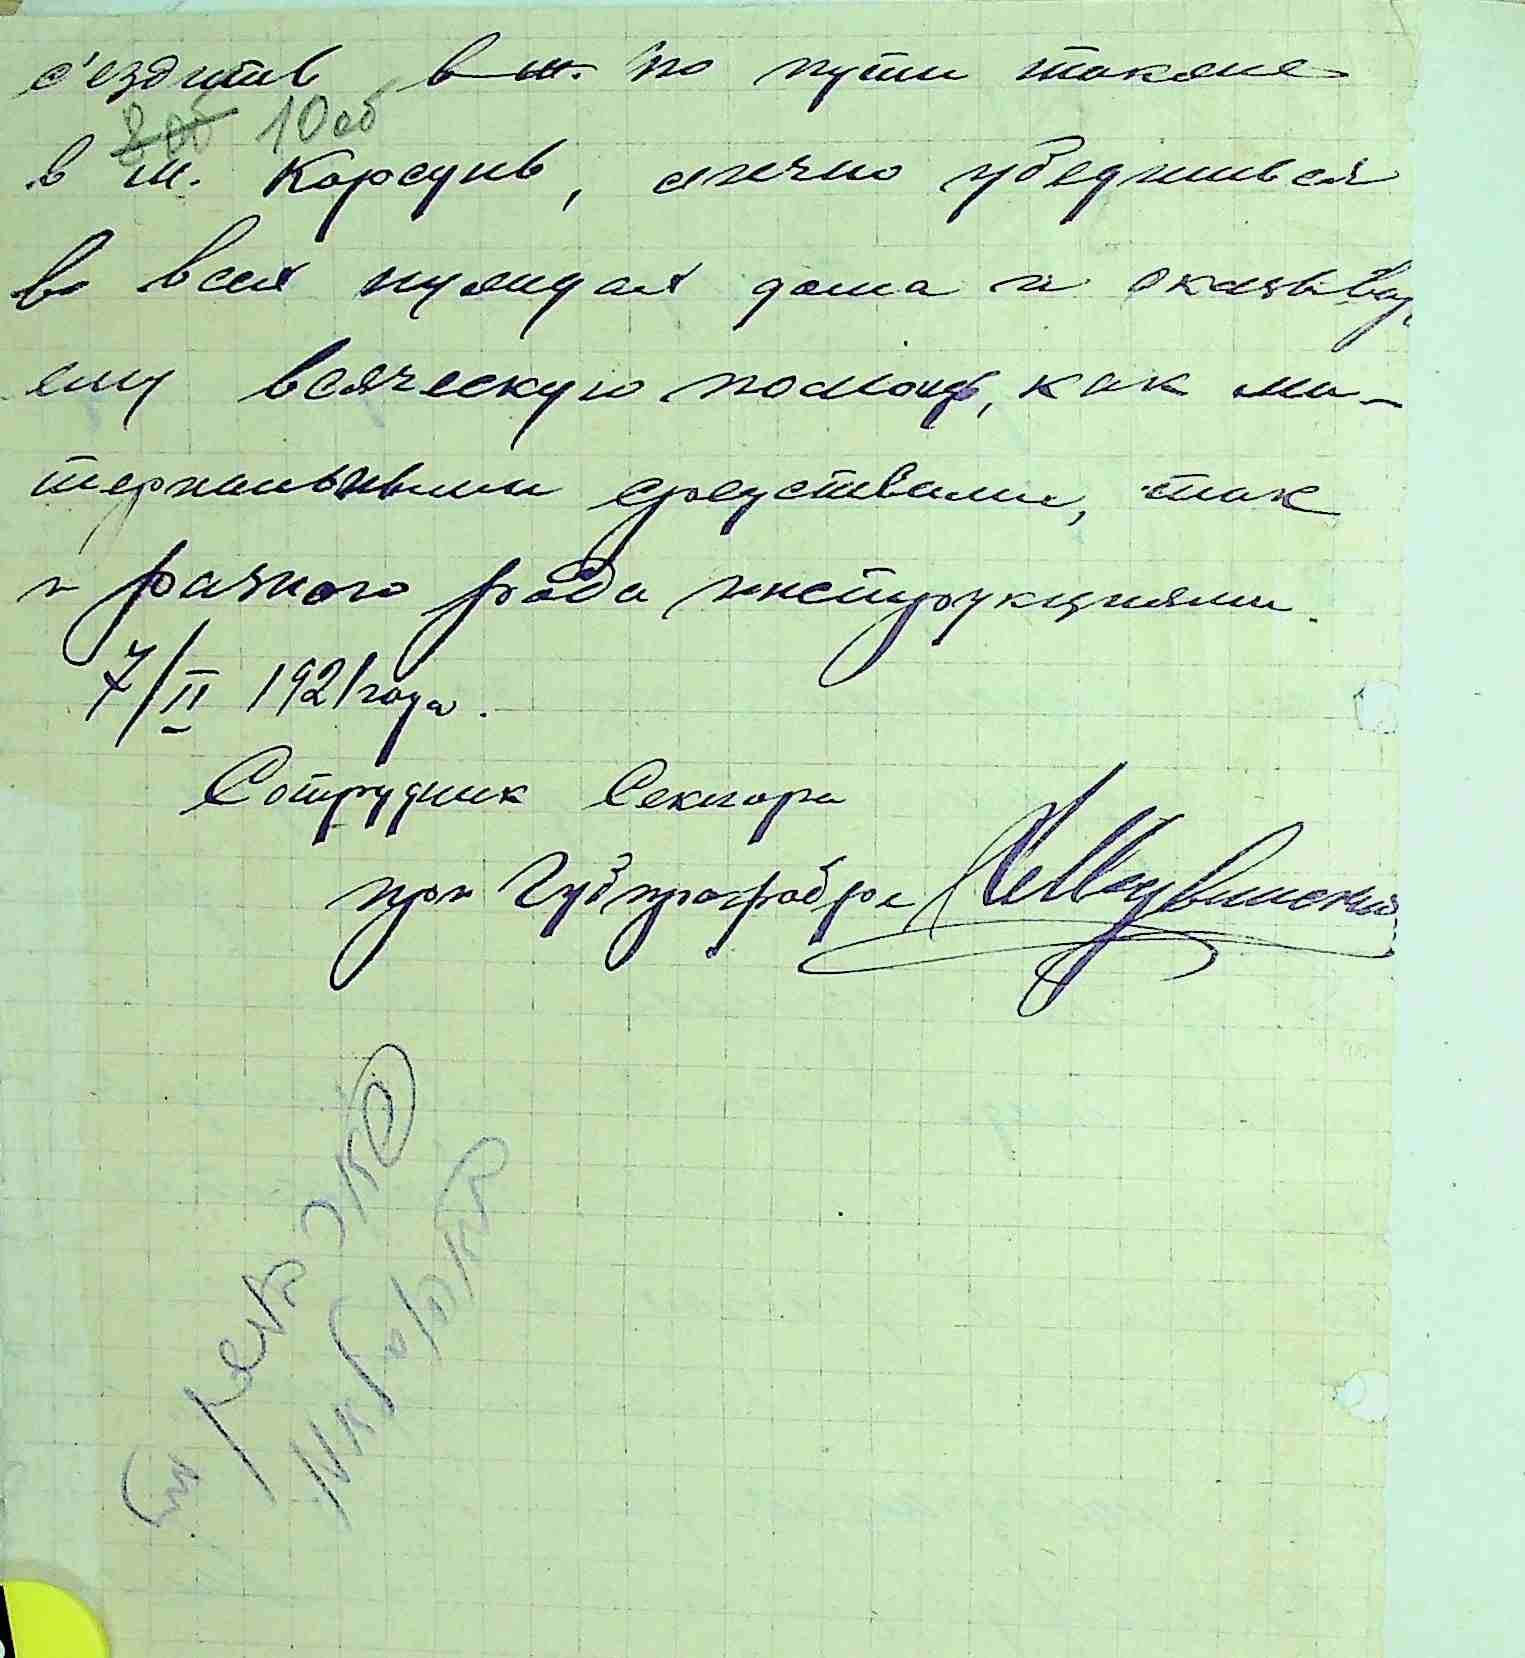 с'ездить в м. по пути также
8об 10об
в м. Корсунь, лично убедиться
во всех нуждах дома и оказывать
ему всяческую помощь, как ма-
териальными средствами, так
и разного рода инструкциями.
7/II 1921 года.
Сотрудник Сектора
при Губпрофобре
См
на обороте